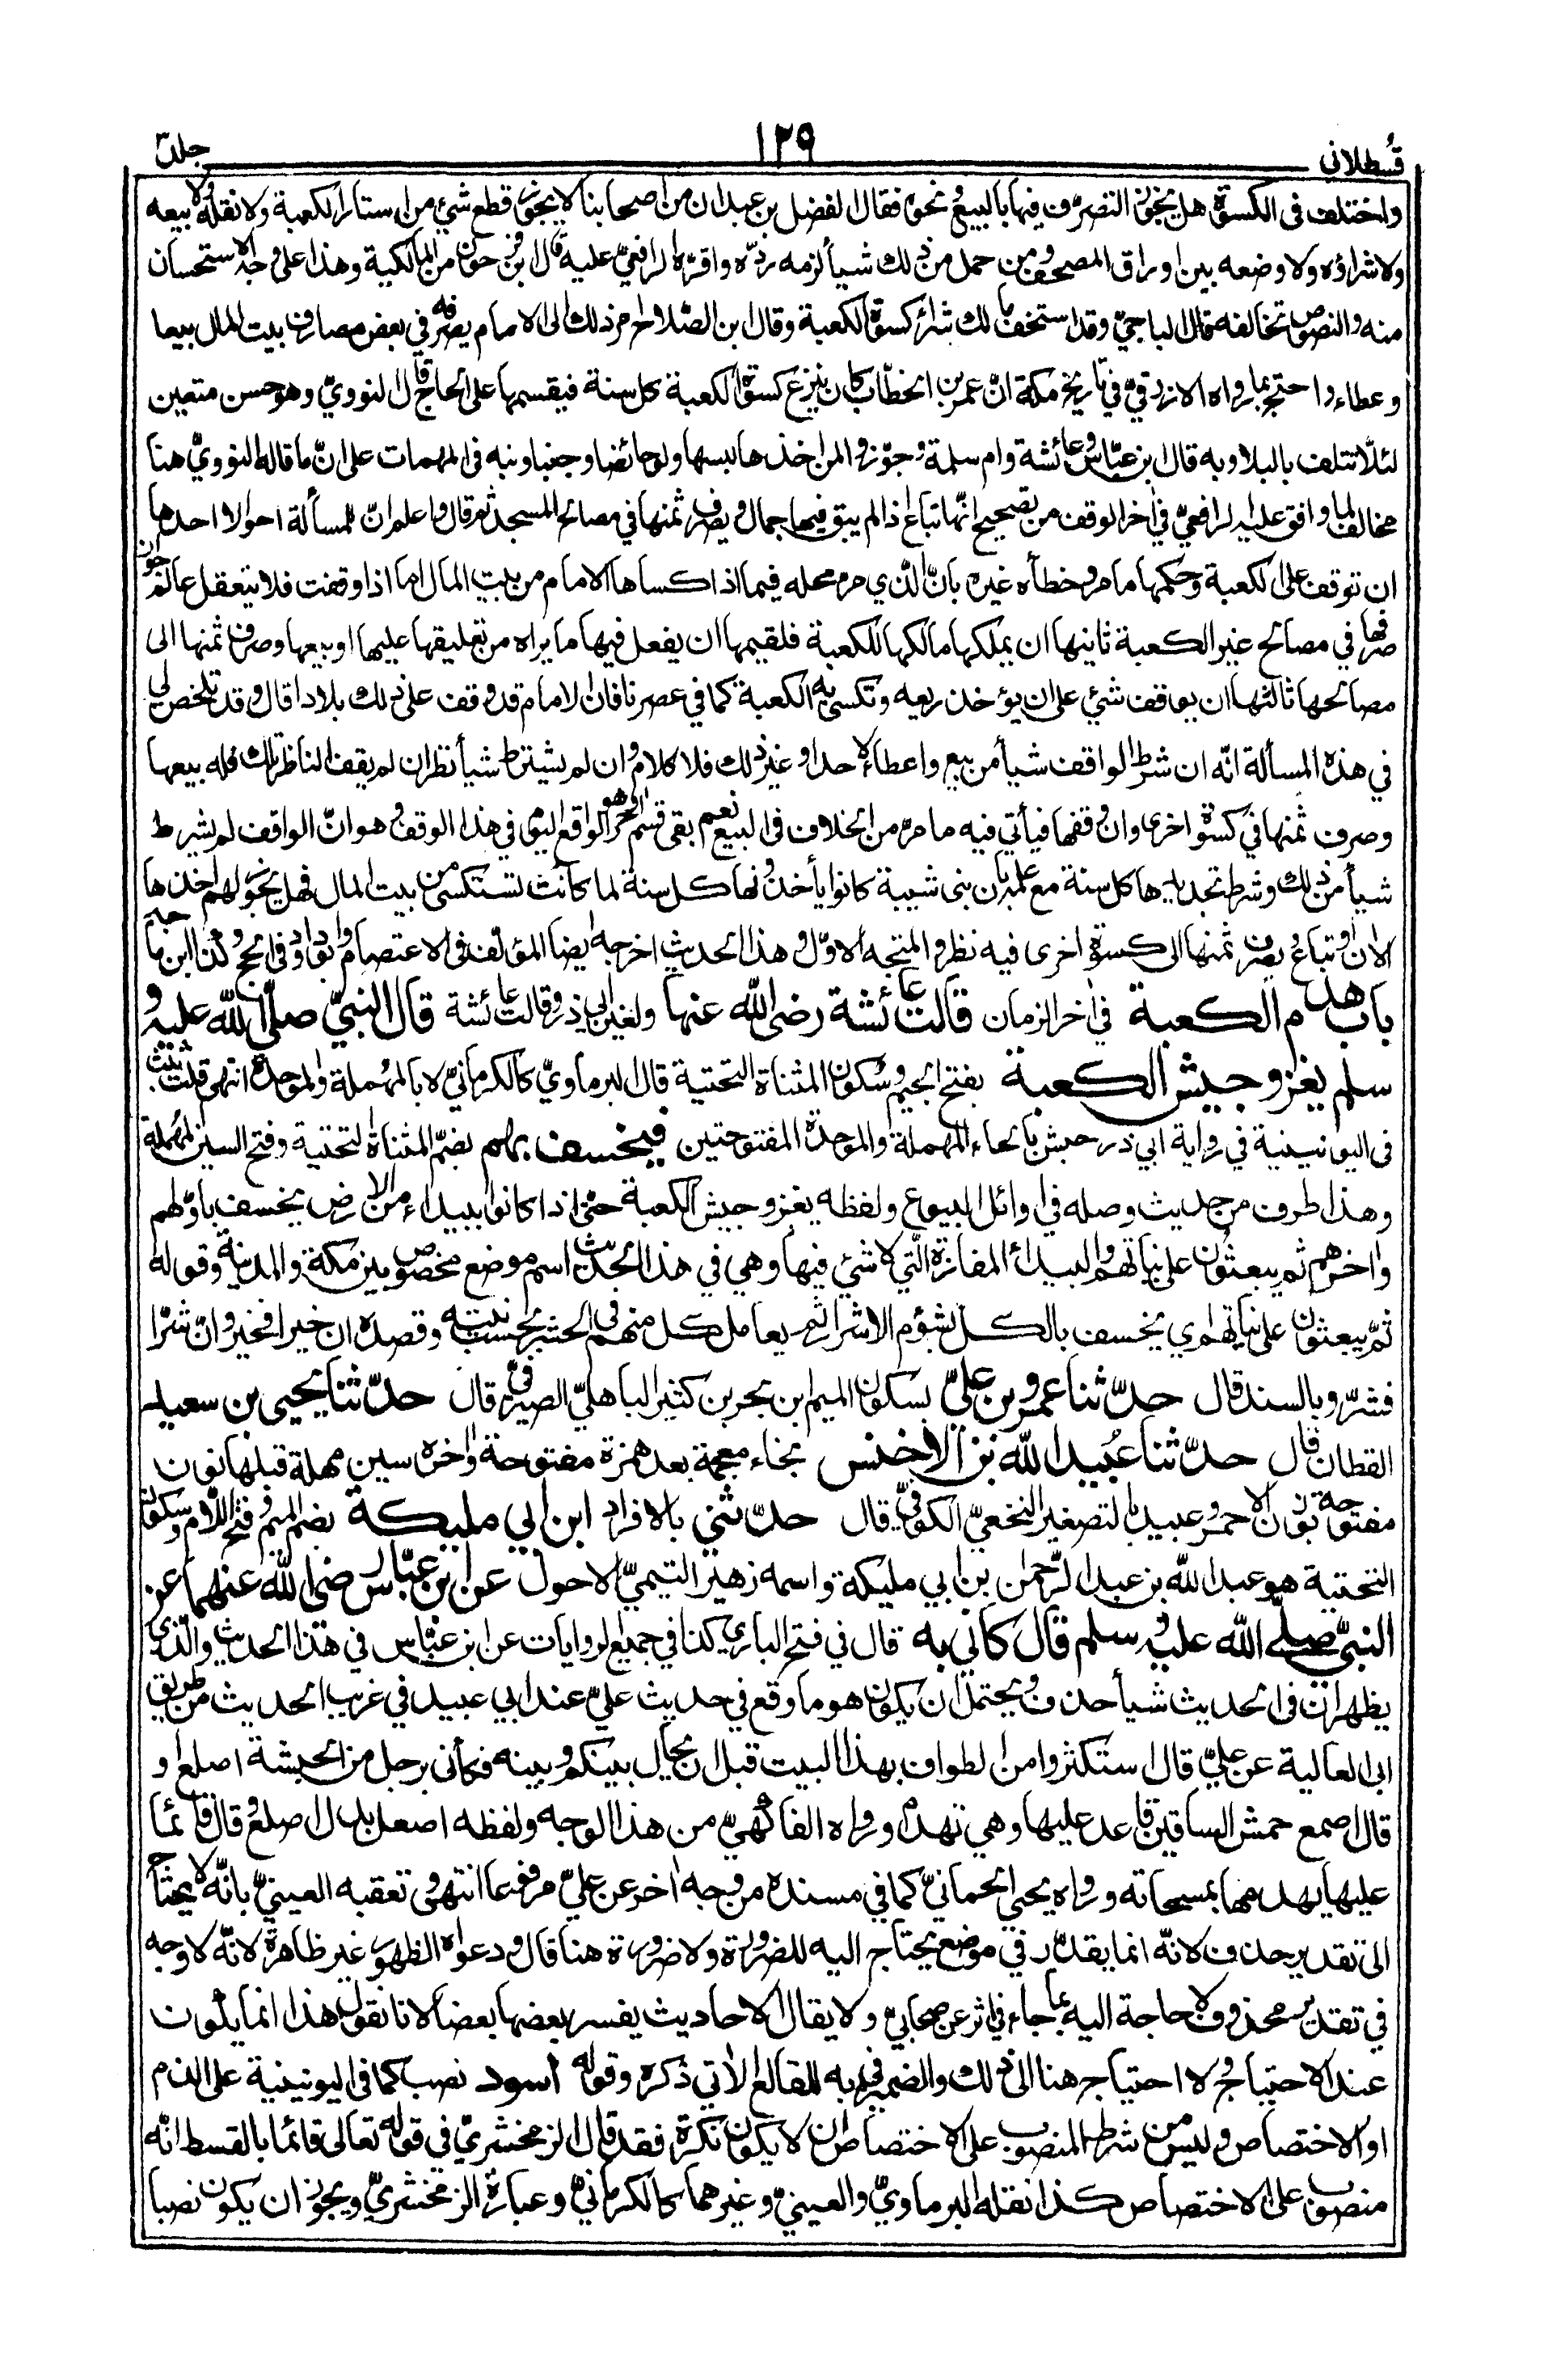 قسطلاني
١٢٩
جلد ٣
واختلف فى الكسوة هل يجوز التصرّف فيها بالبيع ونحوه فقال الفضل بن عبدان من اصحابنا لا يجوز قطع شئ من استار الكعبة ولا نقله ولا بيعه
ولا شراؤه ولا وضعه بين اوراق المصحف ومن حمل من ذلك شيأ لزمه ردّه واقرّه الرافعيّ عليه قال ابن فرحون من المالكية وهذا على وجه الاستحسان
منه والنصوص تخالفه قال الباجيّ وقد استخف مالك شراء كسوة الكعبة وقال ابن الصّلاح امر ذلك الى الامام يصرفه في بعض مصارف بيت المال بيعا
وعطاء واحتج بما رواه الازرقيّ في تاريخ مكة انّ عمر بن الخطّاب كان ينزع كسوة الكعبة كل سنة فيقسمها على الحاج قال النوويّ وهو حسن متعين
لئلّا تتلف بالبلا وبه قال ابن عبّاس وعائشة وام سلمة وجوّزوا لمن اخذها لبسها ولو حائضا وجنبا ونبه فى المهمات على انّ ما قاله النوويّ هنا
مخالف لما وافق عليه الرافعيّ في اٰخر الوقف من تصحيح انّها تباع اذا لم يبق فيها جمال ويصرف ثمنها في مصالح المسجد ثم قال واعلم انّ للمسألة احوالا احدها
ان توقف على الكعبة وحكمها ما مر وخطأه غيره بانّ الّذي مر محله فيما اذا كساها الامام من بيت المال اما اذا وقفت فلا يتعقل عالم جواز
صرفها في مصالح غير الكعبة ثانيها ان يملكها مالكها للكعبة فلقيمها ان يفعل فيها ما يراه من تعليقها عليها او بيعها وصرف ثمنها الى
مصالحها ثالثها ان يوقف شئ على ان يؤخذ ريعه وتكسى به الكعبة كما في عصرنا فان الامام قد وقف على ذلك بلادا قال وقد تلخص لي
في هذه المسألة انّه ان شرط الواقف شيأ من بيع واعطاء لاحد او غير ذلك فلا كلام وان لم يشترط شيأ نظر ان لم يقف الناظر تلك فله بيعها
وصرف ثمنها في كسوة اخرى وان وقفها فيأتي فيه ما مرّ من الخلاف فى البيع نعم بقى قسم اٰخر وهو الواقع اليوم في هذا الوقف وهو انّ الواقف لم يشرط
شيأ من ذلك وشرط تجديدها كل سنة مع علمه بان بنى شيبة كانوا يأخذونها كل سنة لما كانت تستكسى من بيت المال فهل يجوز لهم اخذها
الاٰن او تباع ويصرف ثمنها الى كسوة اخرى فيه نظر والمتجه الاوّل وهذا الحديث اخرجه ايضا المؤلف فى الاعتصام وابو داود فى الحج وكذا ابن ماجه
باب هدم الكعبة في اٰخر الزمان قالت عائشة رضى الله عنها ولغير ابي ذر وقالت عائشة قال النبيّ صلّى الله عليه و
سلم يغزو جيش الكعبة بفتح الجيم وسكون المثناة التحتية قال البرماويّ كالكرمانيّ لا بالمهملة والموحدة انتهى قلت ثبتت
فى اليونينية في رواية ابي ذر حبش بالحاء المهملة والموحدة المفتوحتين فيخسف بهم بضمّ المثناة التحتية وفتح السين المهملة
وهذا طرف من حديث وصله في اوائل البيوع ولفظه يغزو جيش الكعبة حتى اذا كانوا ببيداء من الارض يخسف باوّلهم
واٰخرهم ثم يبعثون على نياتهم والبيداء المفازة الّتي لا شئ فيها وهي في هذا الحديث اسم موضع مخصوص بين مكة والمدينة وقوله
ثمّ يبعثون على نياتهم اي يخسف بالكل لشؤم الاشرار ثم يعامل كل منهم في الحشر بحسب نيته وقصده ان خيرا فخير وانّ شرّا
فشرّ وبالسند قال حدّثنا عمرو بن عليّ بسكون الميم ابن بحر بن كثير الباهليّ الصيرفيّ قال حدّثنا يحيى بن سعيد
القطان قال حدّثنا عُبيد الله بن الاخنس بخاء معجمة بعد همزة مفتوحة واٰخره سين مهملة قبلها نون
مفتوحة بوزن الاحمر وعبيد بالتصغير النخعيّ الكوفيّ قال حدّثني بالافراد ابن ابي مليكة بضم الميم وفتح اللّام وسكون
التحتية هو عبد الله بن عبد الرّحمٰن بن ابي مليكة واسمه زهير التيميّ الاحول عن ابن عبّاس رضى الله عنهما عن
النبيّ صلّى الله عليه وسلم قال كاني به قال في فتح الباري كذا في جميع الروايات عن ابن عبّاس في هذا الحديث والّذي
يظهر انّ فى الحديث شيأ حذف ويحتمل ان يكون هو ما وقع في حديث عليّ عند ابي عبيد في غريب الحديث من طريق
ابى العالية عن عليّ قال استكثروا من الطواف بهذا البيت قبل ان يحال بينكم وبينه فكأنى برجل من الحبشة اصلع او
قال اصمع حمش الساقين قاعد عليها وهي تهدم ورواه الفاكهيّ من هذا الوجه ولفظه اصعل بدل اصلع وقال قائما
عليها يهدمها بمسحاته ورواه يحيى الحمانيّ كما في مسنده من وجه اٰخر عن عليّ مرفوعا انتهى وتعقبه العينيّ بانّه لا يحتاج
الى تقدير حذف لانّه انما يقدّر في موضع يحتاج اليه للضرورة ولا ضرورة هنا قال ودعواه الظهور غير ظاهرة لانّه لا وجه
في تقدير محذوف لا حاجة اليه بما جاء في اثر عن صحابيّ ولا يقال الاحاديث يفسر بعضها بعضا لانا نقول هذا انما يكون
عند الاحتياج ولا احتياج هنا الى ذلك والضمير في به للقالع الاٰتي ذكره وقوله اسود نصب كما فى اليونينية على الذم
او الاختصاص وليس من شرط المنصوب على الاختصاص ان لا يكون نكرة فقد قال الزمخشريّ في قوله تعالى قائما بالقسط انّه
منصوب على الاختصاص كذا نقله البرماويّ والعينيّ وغيرهما كالكرمانيّ وعبارة الزمخشريّ ويجوز ان يكون نصبا